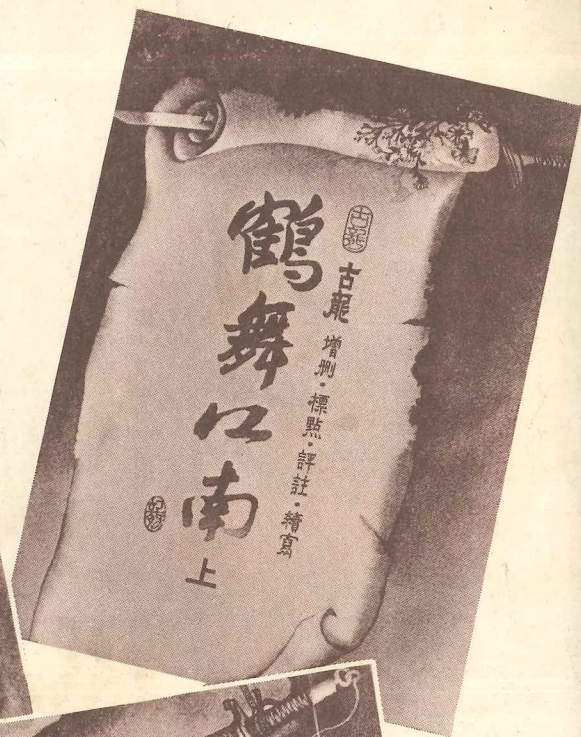 古龍
古龍 增刪·標點·評註·續寫
鶴舞江南
上
古龍